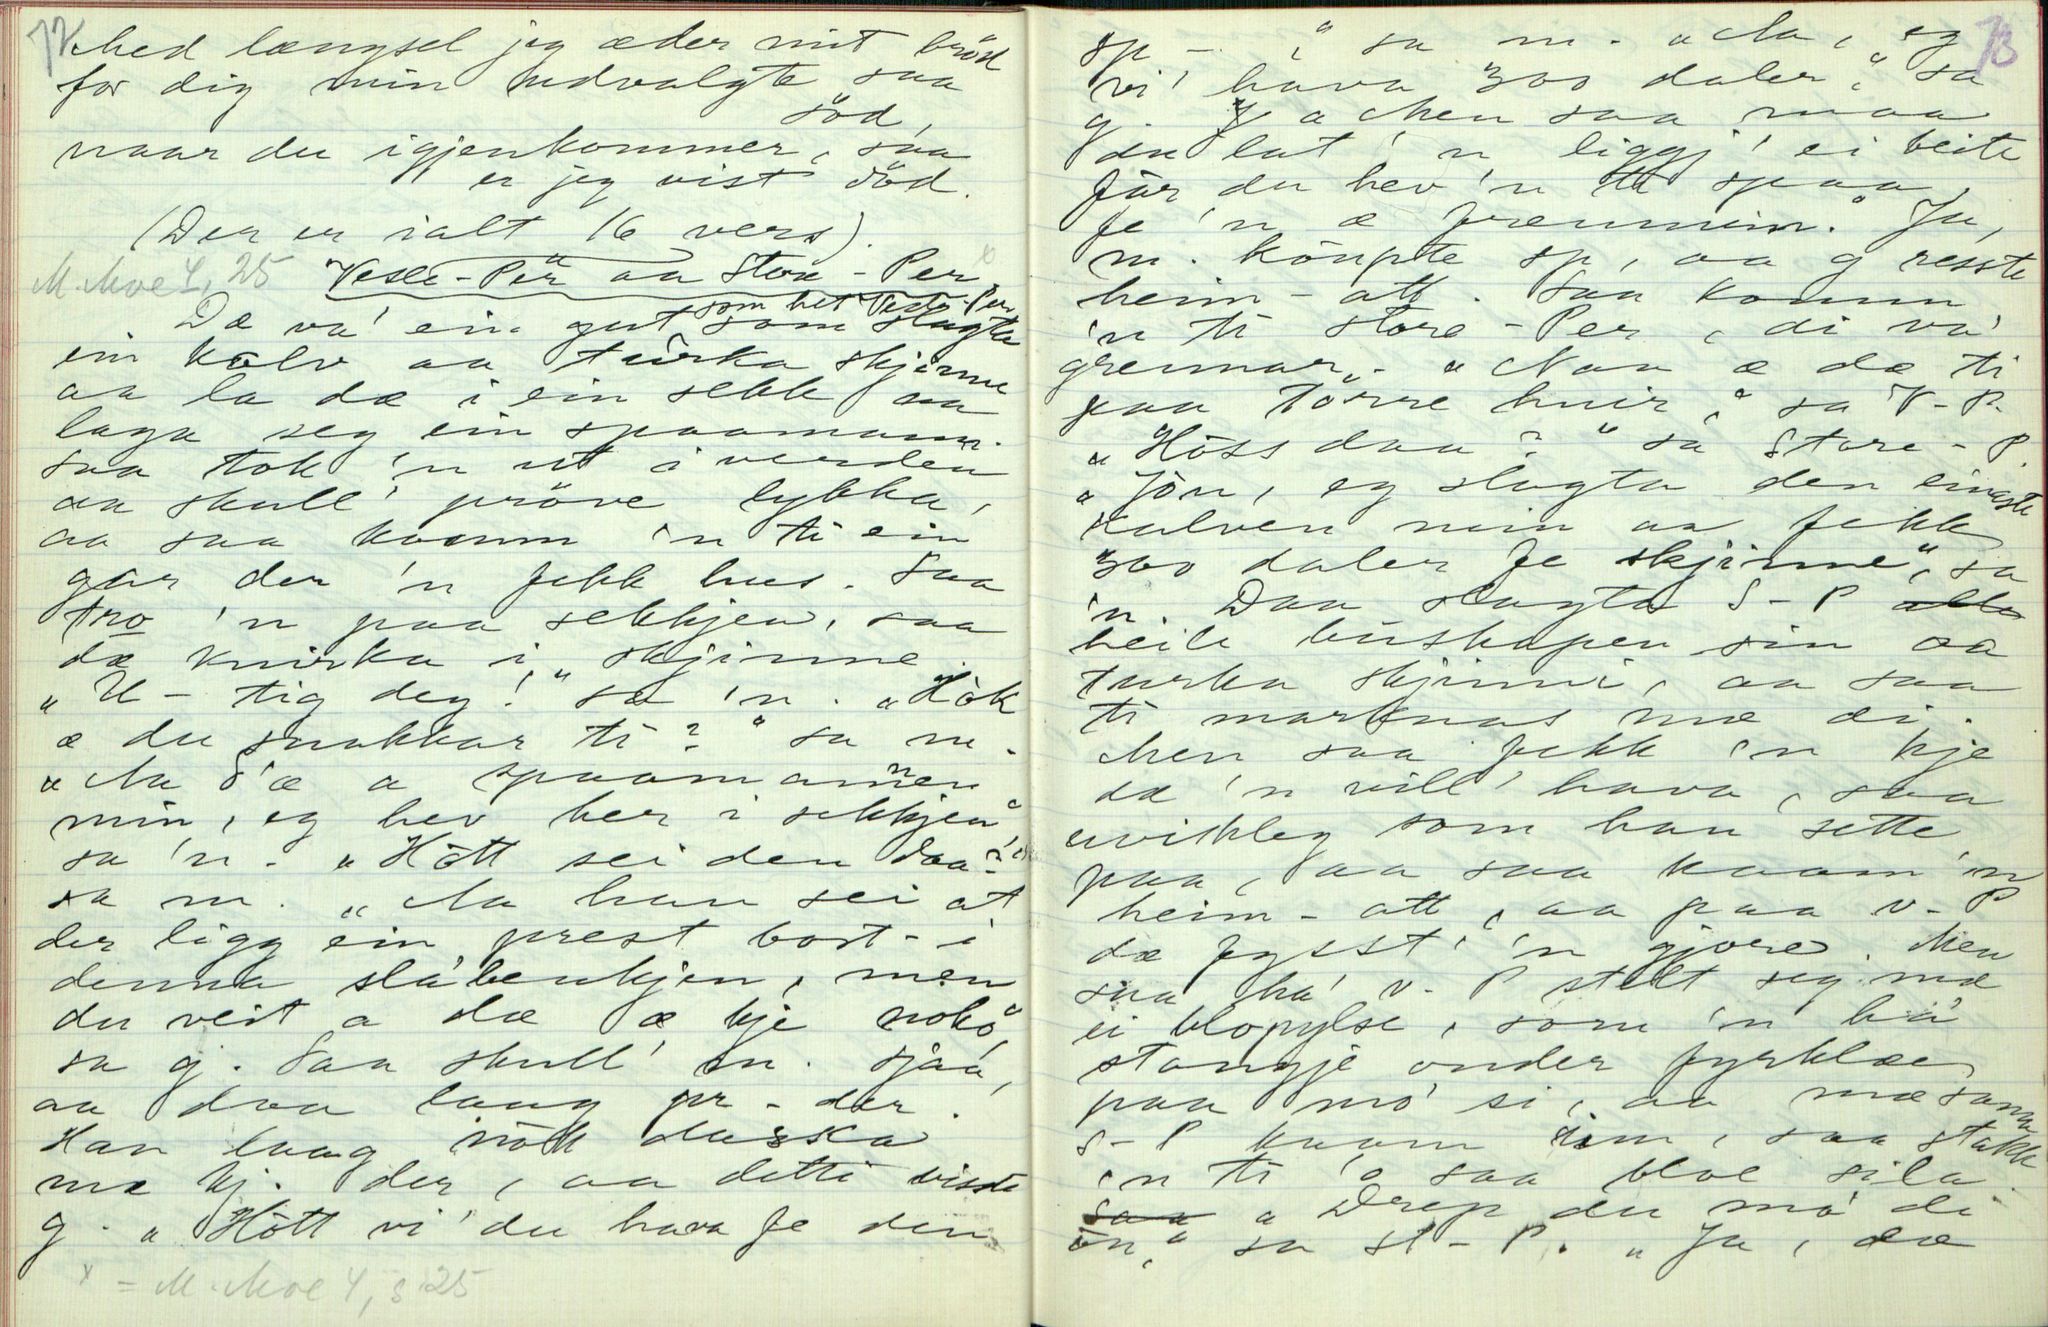 72
Med længsel jeg æder mit bröd
for dig min udvalgte saa
söd,
naar du igjenkommer, saa
er jeg vist död.
(Der er ialt 16 vers).
M. Moe 4, 25 Vesle-Per aa Store-Per x
som het Vesle-Per
Dæ va' ein gut som slagta
ein kalv aa turka skjinne
aa la dæ i ein sekk aa
laga seg ein spaamann.
Saa tok 'n ut i verden
aa skull' pröve lykka,
aa saa komm 'n ti ein
gar der 'n fekk hus. Saa
tro 'n paa sekkjen, saa
dæ knirka i skjinne.
"U - tig deg!" sa 'n. "Hök
æ du snakkar ti?" sa m.
"Aa d'æ a spaamannen
min, eg hev her i sekkjen",
sa 'n. "Hött sei den daa?"
sa m. "Aa han sei at
der ligg ein prest bort-i
denna slábenkjen, men
du veit a dæ æ kje nokö",
sa g. Saa skull' m. sjaa,
aa daa laag pr. der!
Han laag nök aa daska
mæ kj. der, aa detti visste
g. "Hött vi' du hava fe den
x = M. Moe 4, s 25
73
sp - ," sa m. "Aa, eg
vi' hava 300 daler," sa
g. "Men saa maa
du lat 'n liggj' ei beite
für du hev 'n ti spaa,
fe 'n æ fremmin." Ja,
m. köupte sp, aa g resste
heim-att. Saa komm
'n ti Store-Per, di va'
grennar. "Naa æ dæ ti
paa törre huir," sa V-P.
"Höss daa?" sa Store-P.
"Jön, eg slagta den einaste
kalven min aa fekk
300 daler fe skjinne", sa
'n. Daa slagta S-P alle
heile búskapen sin aa
turka skjinni, aa saa
ti marknas mæ di.
Men saa fekk 'n kje
dæ 'n vill' hava, saa
uvikleg som han sette
paa, aa saa kaam 'n
heim-att, aa paa V-P
dæ fysst' 'n gjore. Men
saa ha' V-P stelt seg mæ
ei blopylse, som 'n ha'
stangje onder fyrklæe
paa mo' si, aa mæ samm
S-P kaam inn, saa stakk
'n ti 'o saa bloe sila.
saa "Drep du mo' di
ön," sa St-P. "Ja, dæ